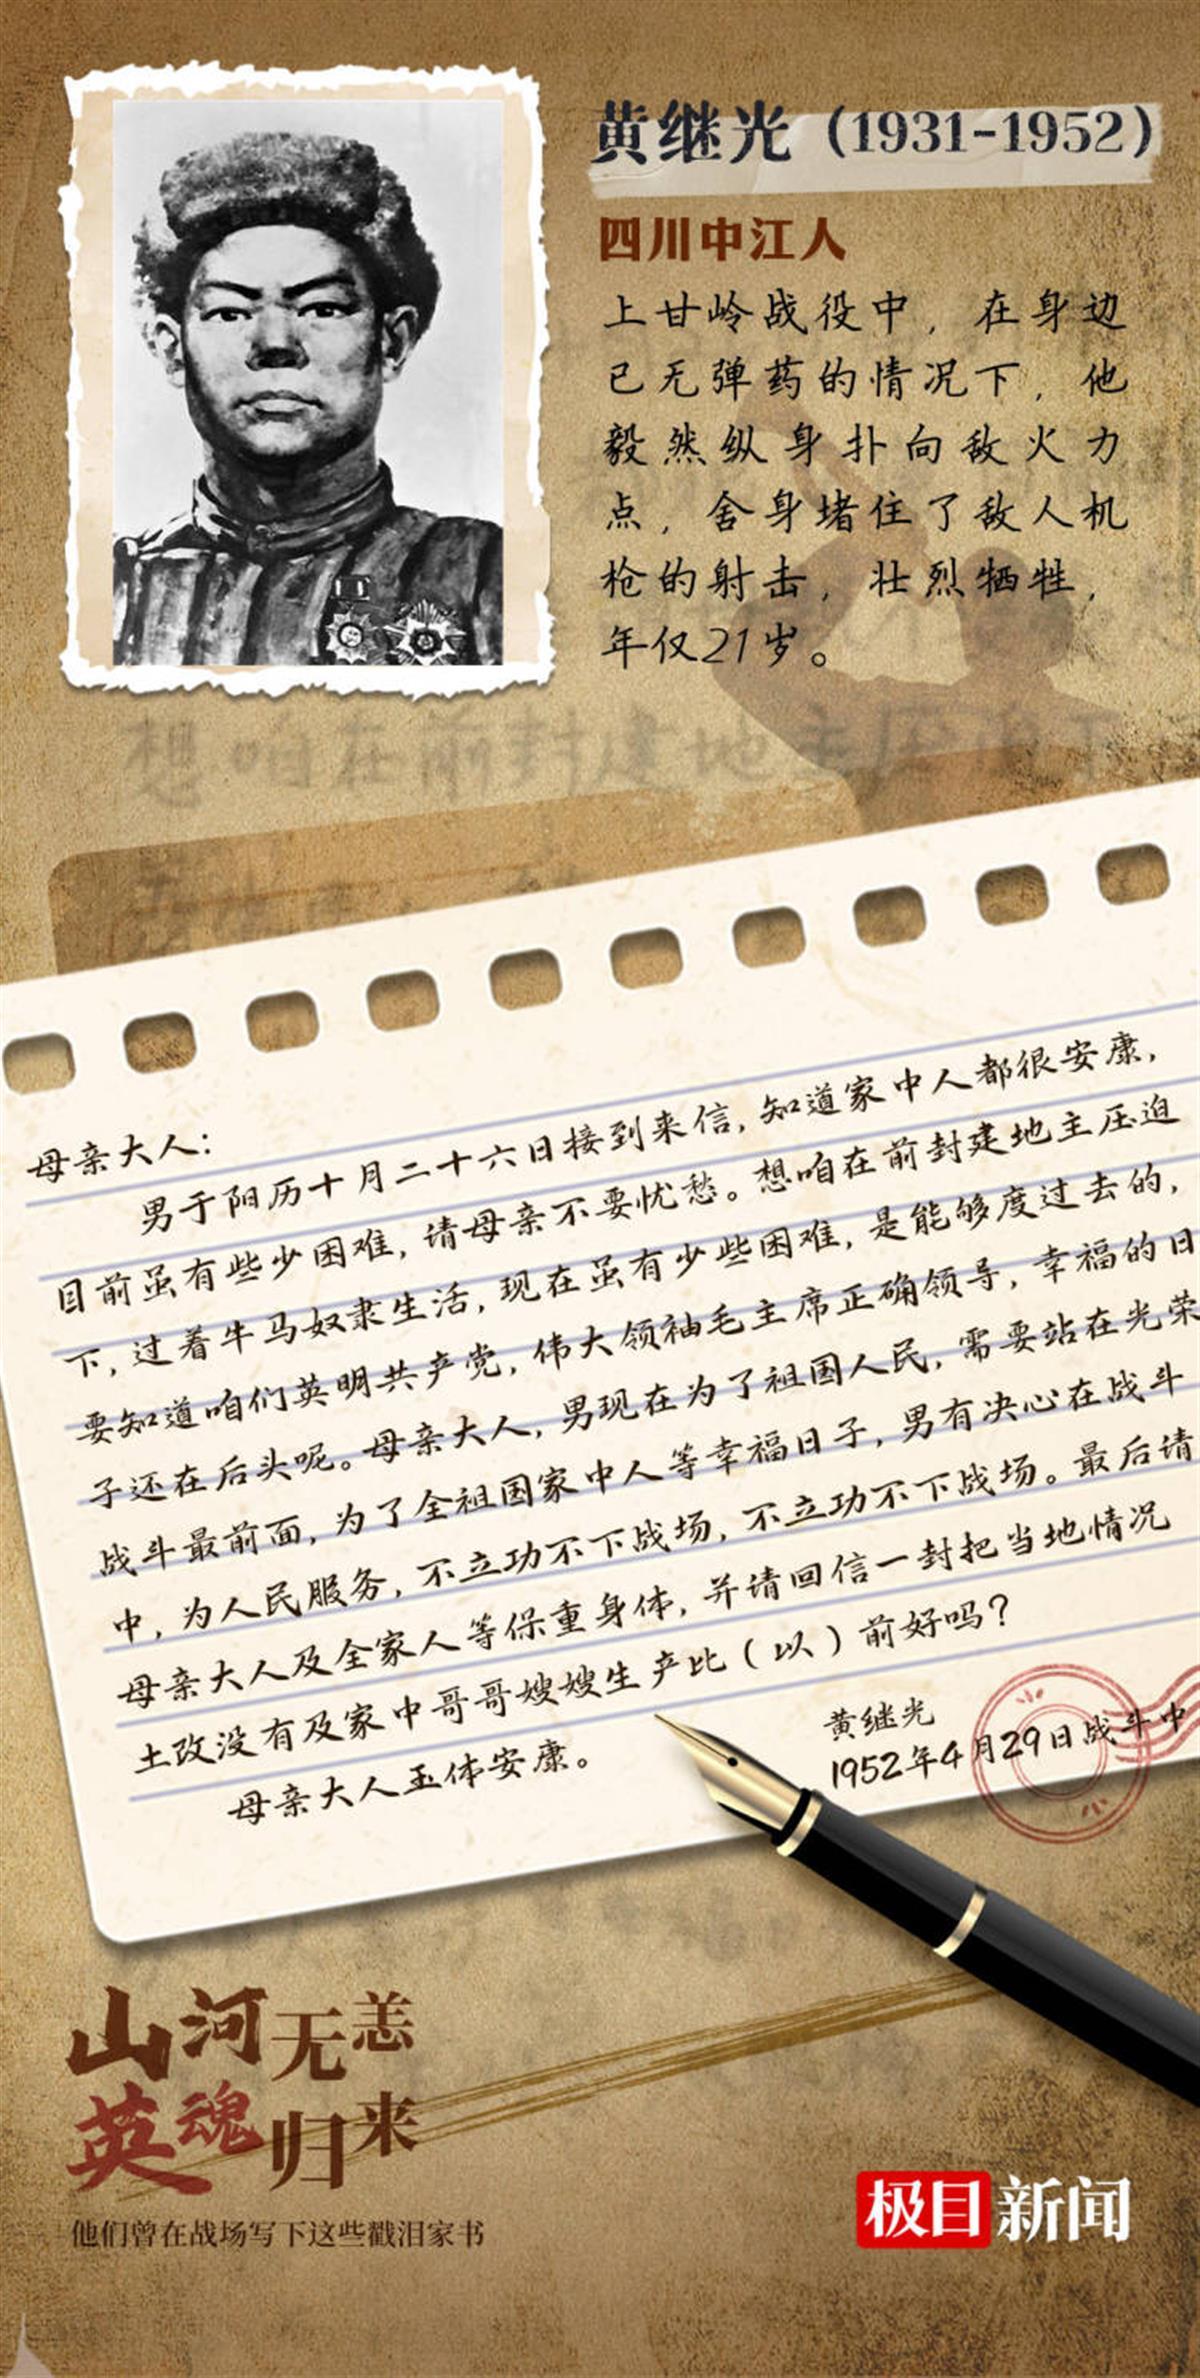 黄继光（1931-1952）
四川中江人
上甘岭战役中，在身边
已无弹药的情况下，他
毅然纵身扑向敌火力
点，舍身堵住了敌人机
枪的射击，壮烈牺牲，
年仅21岁。
想咱在前封建地主压迫下
母亲大人：
男于阳历十月二十六日接到来信，知道家中人都很安康，
目前虽有些少困难，请母亲不要忧愁。想咱在前封建地主压迫
下，过着牛马奴隶生活，现在虽有少些困难，是能够度过去的，
要知道咱们英明共产党，伟大领袖毛主席正确领导，幸福的日
子还在后头呢。母亲大人，男现在为了祖国人民，需要站在光荣
战斗最前面，为了全祖国家中人等幸福日子，男有决心在战斗
中，为人民服务，不立功不下战场，不立功不下战场。最后请
母亲大人及全家人等保重身体，并请回信一封把当地情况
土改没有及家中哥哥嫂嫂生产比（以）前好吗？
母亲大人玉体安康。
黄继光
1952年4月29日战斗中
山河无恙
英魂归来
他们曾在战场写下这些戳泪家书
极目新闻